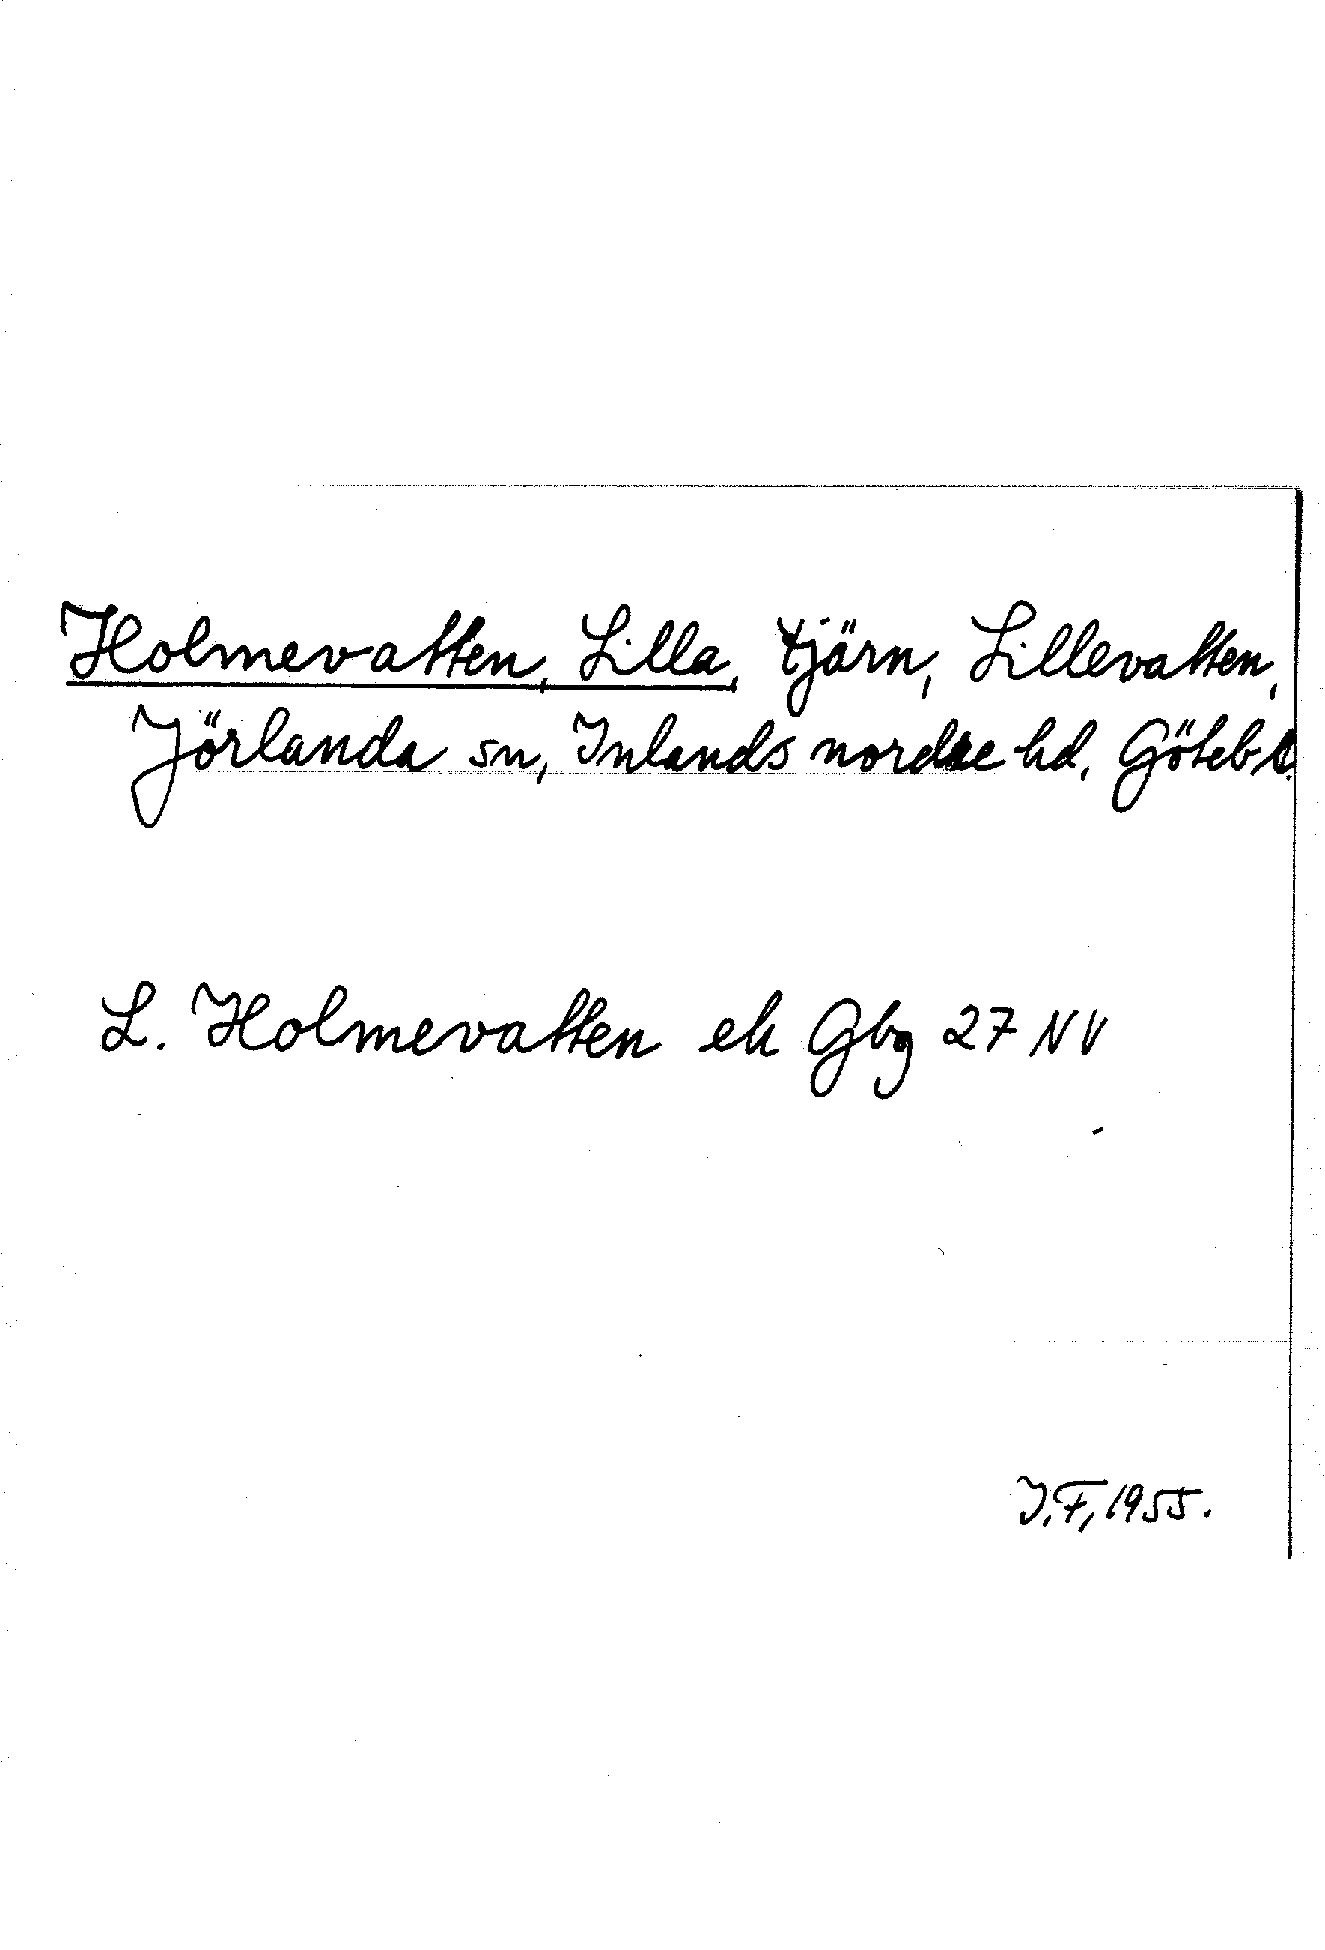 Holmevatten, Lilla, tjärn, Lillevatten,
Jörlanda sn, Inlands nordre hd, Göteb. l.
L. Holmevatten ek Gbg 27 NV
J.F, 1955.